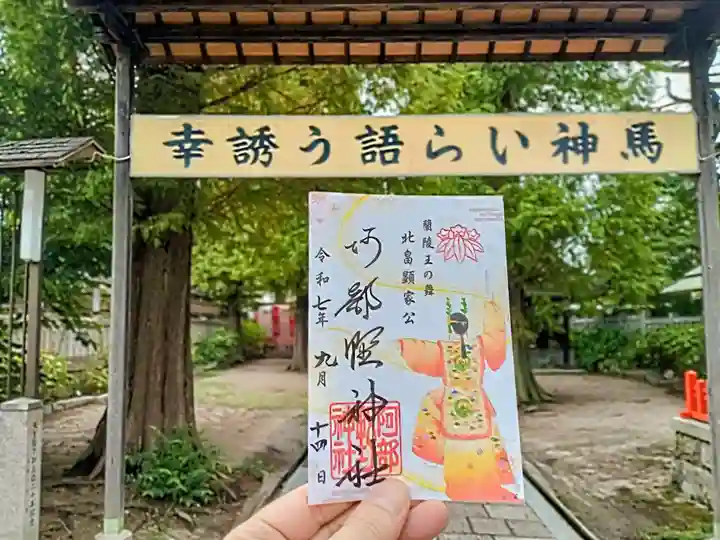 幸誘う語らい神馬
蘭陵王の舞
北畠顕家公
阿部野神社
令和七年 九月 十四日
阿部野神社